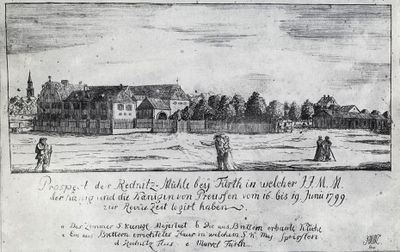 Prospect der Rednitz-Mühle beÿ Fürth in welcher I.I.M.M.
der König und die Königin von Preussen vom 16 bis 19 Juni 1799.
zur Revüe Zeit logirt haben.
a Das Zimmer S. Königl. Majestät b Die aus Brettern erbaute Küche
c Ein aus Brettern errichtetes Haus in welchem S. K. Maj. speissten
d Rednitz Flus e Markt Fürth